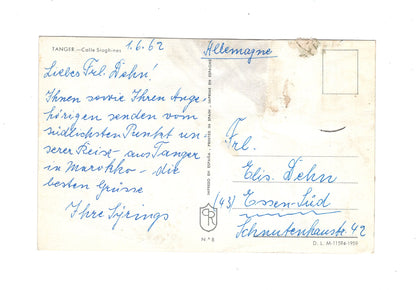 TANGER.—Calle Siaghines
1.6.62
Liebes Frl. Dehn!
Ihnen sowie Ihren Ange-
hörigen senden vom
südlichsten Punkt un-
serer Reise - aus Tanger
in Marokko - die
besten Grüsse
Ihre Syrings
IMPRESO EN ESPAÑA PRINTED IN SPAIN IMPRIMÉ EN ESPAGNE
N.º 8
Allemagne
Frl.
Elis. Dehn
(43) Essen-Süd
Schnutenhausstr 42
D. L. M-11594-1959